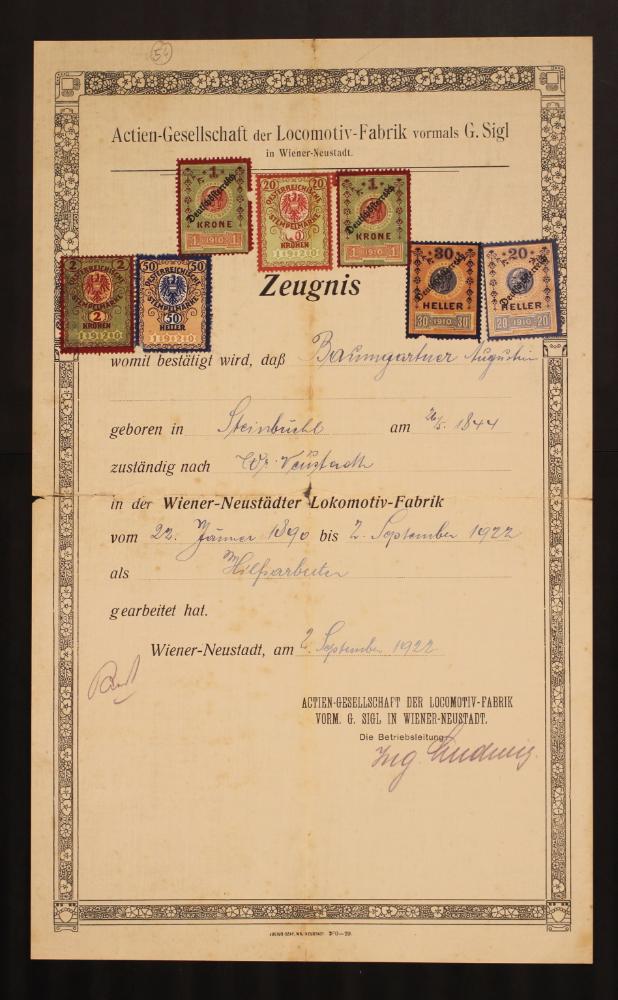 56
Actien-Gesellschaft der Locomotiv-Fabrik vormals G. Sigl
in Wiener-Neustadt.
1 KRONE 1 1910 1 Deutschösterreich
20 20 ÖSTERREICHISCHE STEMPELMARKE 20 KRONEN 1920
1 KRONE 1 1910 1 Deutschösterreich
2 2 ÖSTERREICHISCHE STEMPELMARKE 2 KRONEN 1920
50 50 ÖSTERREICHISCHE STEMPELMARKE 50 HELLER 1920
30 HELLER 30 1910 30 Deutschösterreich
20 HELLER 20 1910 20 Deutschösterreich
Zeugnis
womit bestätigt wird, daß Baumgartner Augustin
geboren in Steinbüchl am 26/5. 1844
zuständig nach Wr. Neustadt
in der Wiener-Neustädter Lokomotiv-Fabrik
vom 22. Jänner 1890 bis 2. September 1922
als Hilfsarbeiter
gearbeitet hat.
Wiener-Neustadt, am 2. September 1922
ACTIEN-GESELLSCHAFT DER LOCOMOTIV-FABRIK
VORM. G. SIGL IN WIENER-NEUSTADT.
Die Betriebsleitung:
Ing. Ludwig